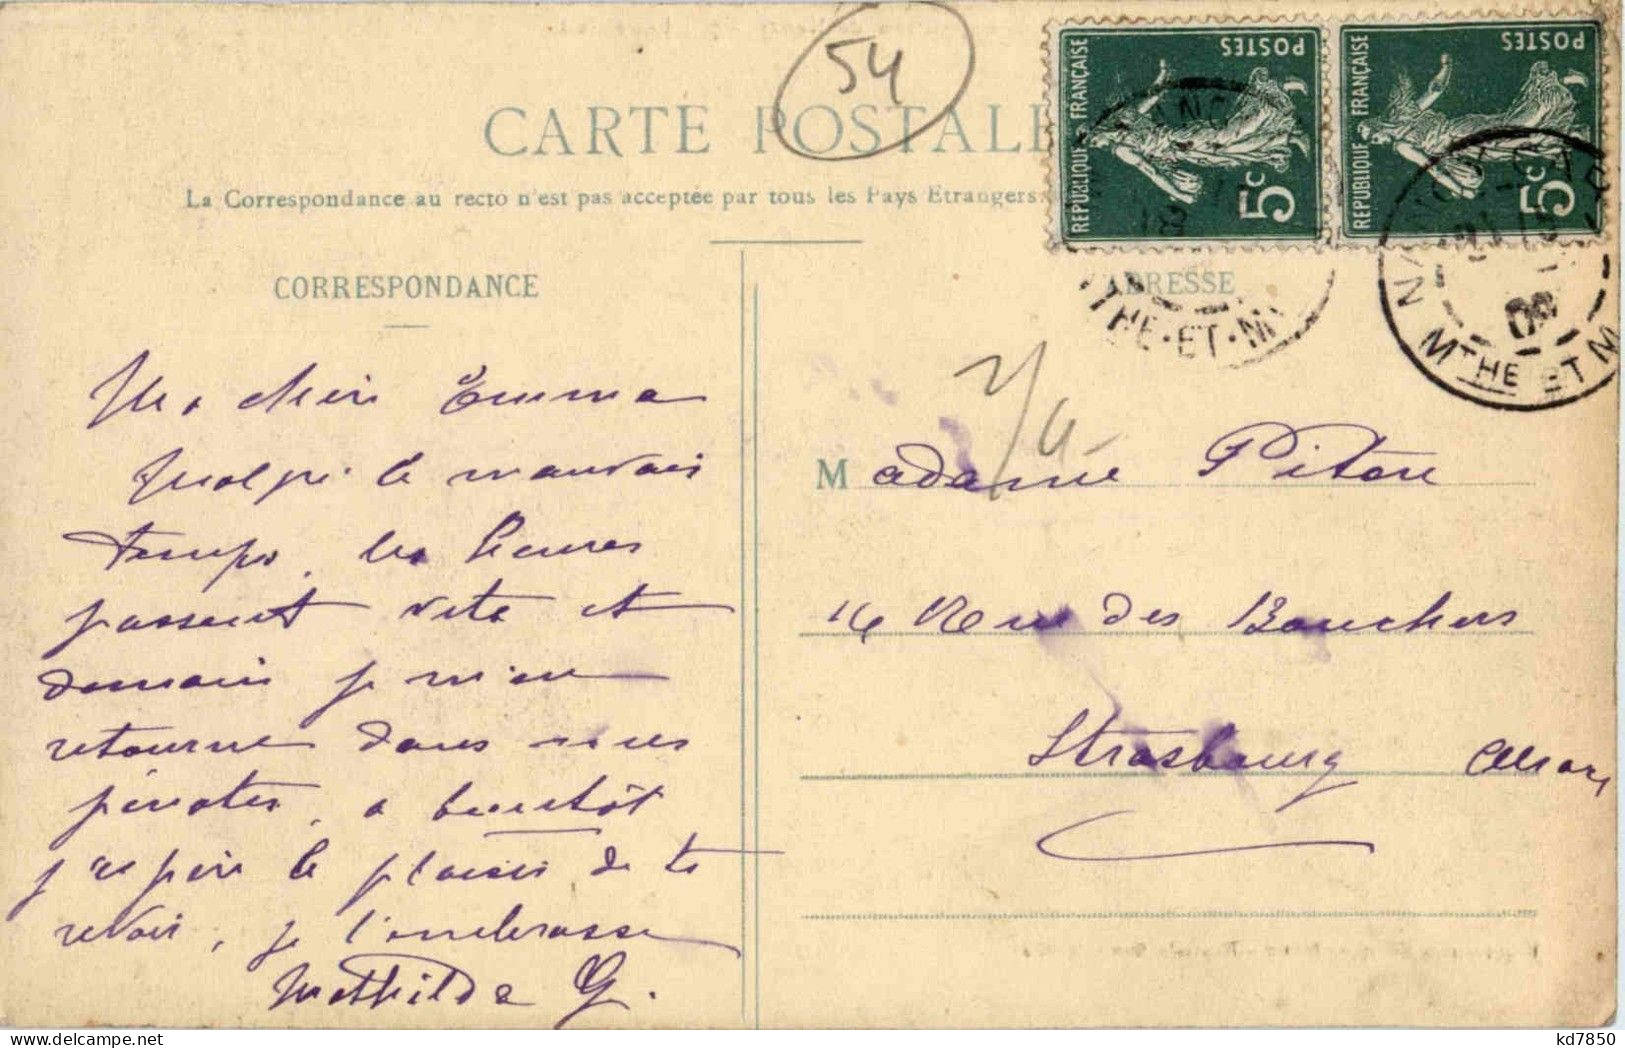 54
CARTE POSTALE
La Correspondance au recto n'est pas acceptée par tous les Pays Etrangers.
POSTES
REPUBLIQUE FRANÇAISE
5c
POSTES
REPUBLIQUE FRANÇAISE
5c
MTHE·ET·M
NANCY
09
MTHE ET M
CORRESPONDANCE
Ma chère Emma
Malgré le mauvais
temps, les heures
passent vite et
demain je m'en
retourne dans mes
pénates, a bientôt
j'espère le plaisir de te
revoir, je t'embrasse
Mathilde G.
ADRESSE
Madame Piton
14 Rue des Bouchers
Strasbourg Alsace
kd7850